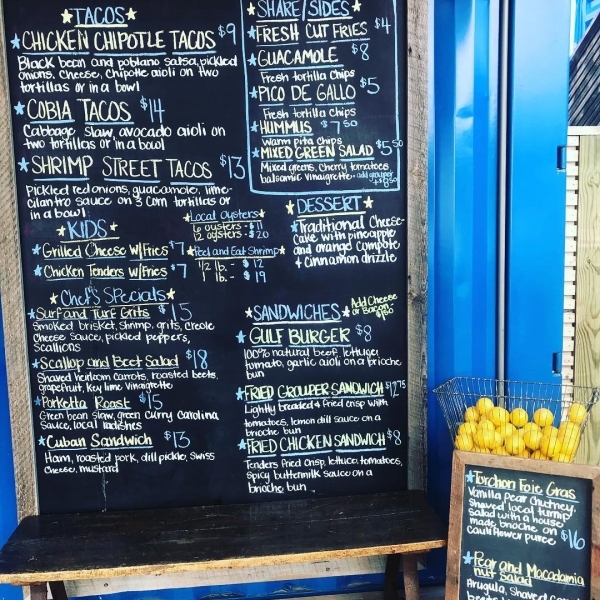 TACOS
CHICKEN CHIPOTLE TACOS $9
Black bean and poblano salsa, pickled
onions, cheese, chipotle aioli on two
tortillas or in a bowl
COBIA TACOS $14
Cabbage slaw, avocado aioli on
two tortillas or in a bowl
SHRIMP STREET TACOS $13
Pickled red onions, guacamole, lime-
cilantro sauce on 3 corn tortillas or
in a bowl
KIDS
Grilled Cheese w/Fries $7
Chicken Tenders w/Fries $7
Local Oysters
6 oysters - $11
12 oysters - $20
Peel and Eat Shrimp
1/2 lb. - $12
1 lb. - $19
Chef's Specials
Surf and Turf Grits $15
Smoked brisket, shrimp, grits, creole
cheese sauce, pickled peppers,
scallions
Scallop and Beet Salad $18
Shaved heirloom carrots, roasted beets,
grapefruit, key lime vinaigrette
Porketta Roast $15
Green bean slaw, green curry Carolina
sauce, local radishes
Cuban Sandwich $13
Ham, roasted pork, dill pickle, swiss
cheese, mustard
SHARE/SIDES
FRESH CUT FRIES $4
GUACAMOLE $8
Fresh tortilla chips
PICO DE GALLO $5
Fresh tortilla chips
HUMMUS $7.50
Warm pita chips
MIXED GREEN SALAD $5.50
Mixed greens, cherry tomatoes
balsamic vinaigrette - add grouper
+$8.50
DESSERT
Traditional Cheese-
cake with pineapple
and orange compote
+ cinnamon drizzle
SANDWICHES
Add Cheese
or Bacon -
$1.50
GULF BURGER $8
100% natural beef, lettuce,
tomato, garlic aioli on a brioche
bun
FRIED GROUPER SANDWICH $12.75
Lightly breaded & fried crisp with
tomatoes, lemon dill sauce on a
brioche bun
FRIED CHICKEN SANDWICH $8
Tenders fried crisp, lettuce, tomatoes,
spicy buttermilk sauce on a
brioche bun
Torchon Foie Gras
Vanilla pear chutney,
shaved local turnip
salad with a house
made brioche on
cauliflower puree $16
Pear and Macadamia
nut Salad
Arugula, shaved